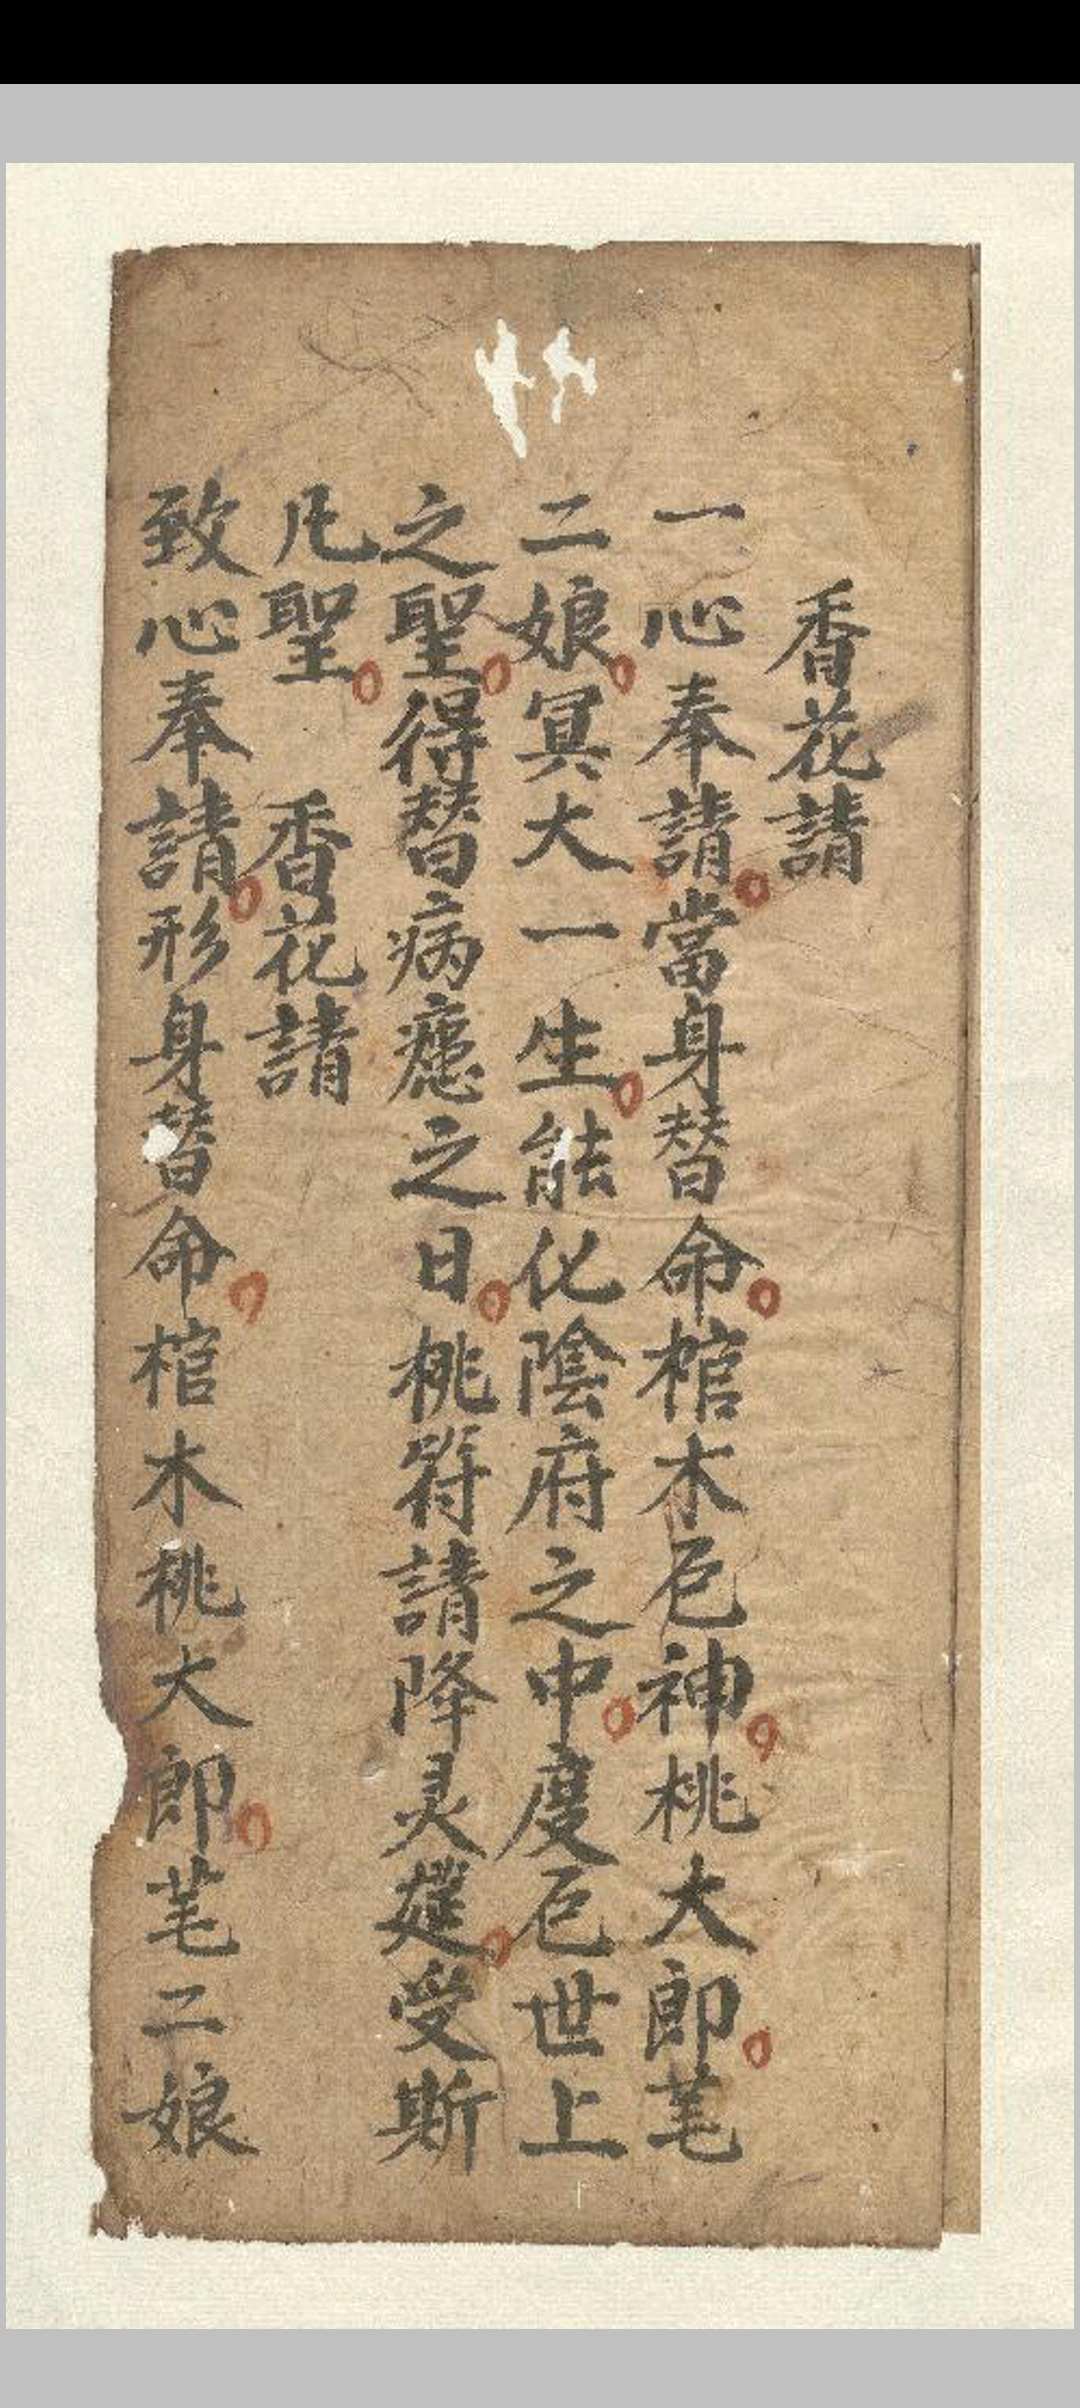 香花請
一心奉請當身替命棺木卮神桃大郎芼
二娘冥大一生能化陰府之中度卮世上
之聖得替病癒之日桃符請降灵筵受斯
凡聖 香花請
致心奉請形身替命棺木桃大郎芼二娘